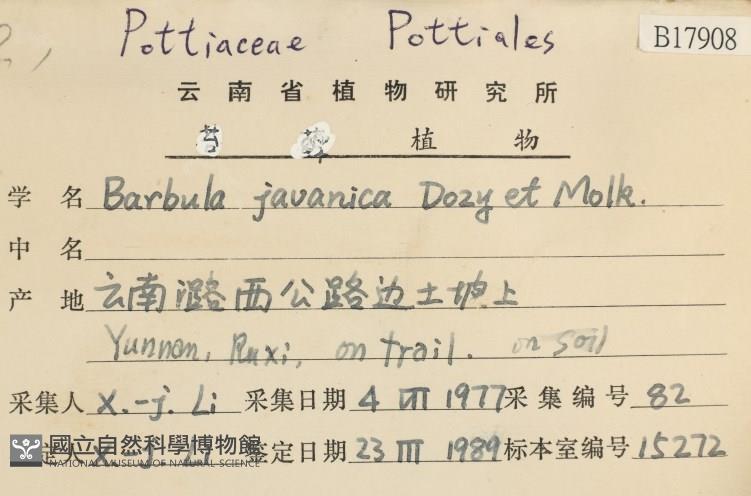 Pottiaceae Pottiales B17908
云南省植物研究所
苔藓植物
学名 Barbula javanica Dozy et Molk.
中名
产地 云南潞西公路边土坡上
Yunnan, Ruxi, on trail. on soil
采集人 X.-j. Li 采集日期 4 VII 1977 采集编号 82
定人 X.-j. Li 鉴定日期 23 III 1989 标本室编号 15272
國立自然科學博物館
NATIONAL MUSEUM OF NATURAL SCIENCE